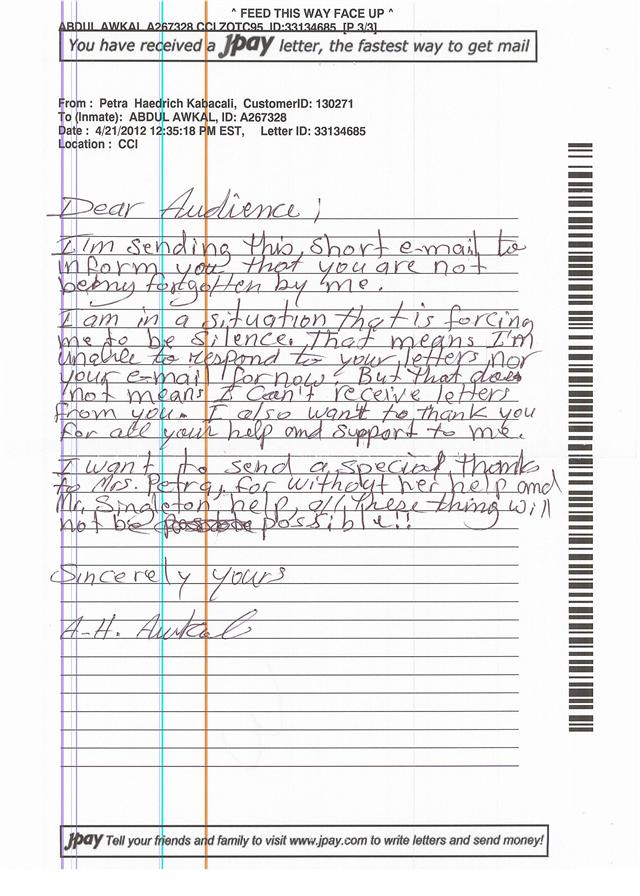 ^ FEED THIS WAY FACE UP ^
ABDUL AWKAL A267328 CCI ZOTC95 ID:33134685 [P 3/3]
You have received a jpay letter, the fastest way to get mail
From : Petra Haedrich Kabacali, CustomerID: 130271
To (Inmate): ABDUL AWKAL, ID: A267328
Date : 4/21/2012 12:35:18 PM EST, Letter ID: 33134685
Location : CCI
Dear Audience ;
I'm sending this short e-mail to
inform you that you are not
being forgotten by me.
I am in a situation that is forcing
me to be silence. That means I'm
unable to respond to your letters nor
your e-mail for now. But that does
not means I can't receive letters
from you. I also want to thank you
for all your help and support to me.
I want to send a special thanks
to Mrs. Petra, for without her help and
Mr. Singleton help, all these thing will
not be possible!!
Sincerely yours
A-H. Awkal
jpay Tell your friends and family to visit www.jpay.com to write letters and send money!